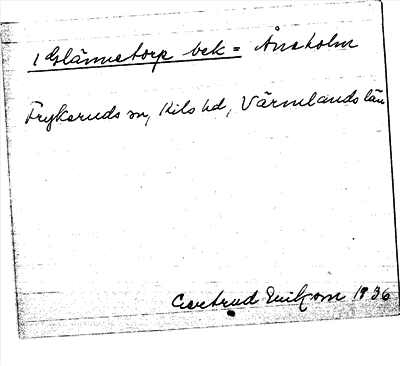 1 Glännetorp bek = Åneholm
Frykeruds sn, Kils hd, Värmlands län
Gertrud Erikson 1936